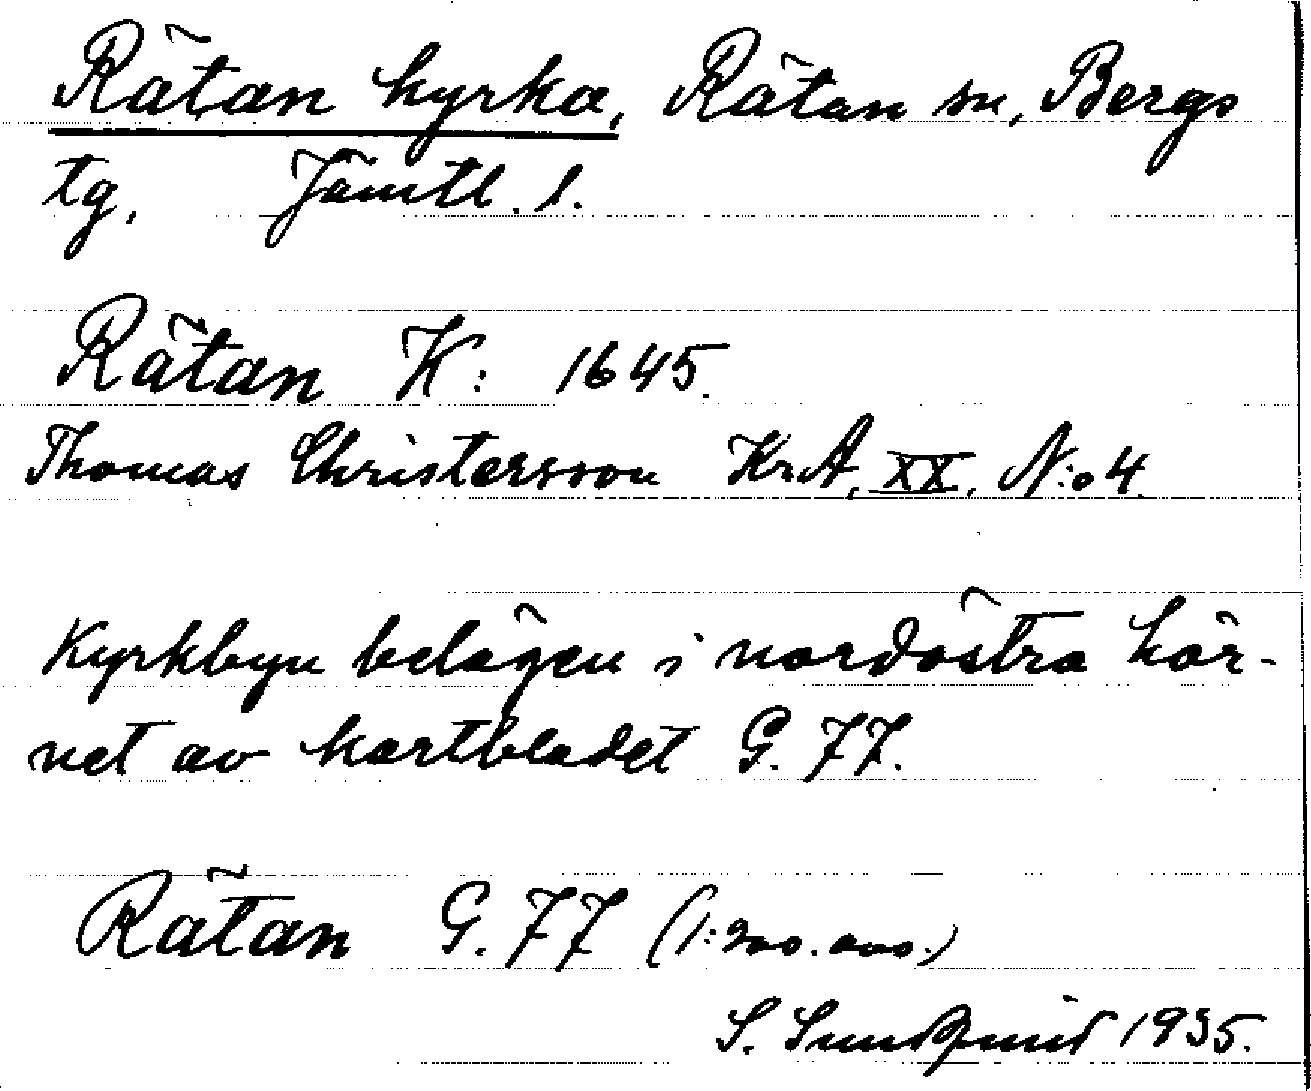 Rätan kyrka, Rätan sn, Bergs
tg, Jämtl. l.
Rätan K: 1645.
Thomas Christersson KrA, XX, N:o 4.
Kyrkbyn belägen i nordöstra hör-
net av kartbladet G. 77.
Rätan G. 77 (1:200.000.)
S. Sundqvist 1935.